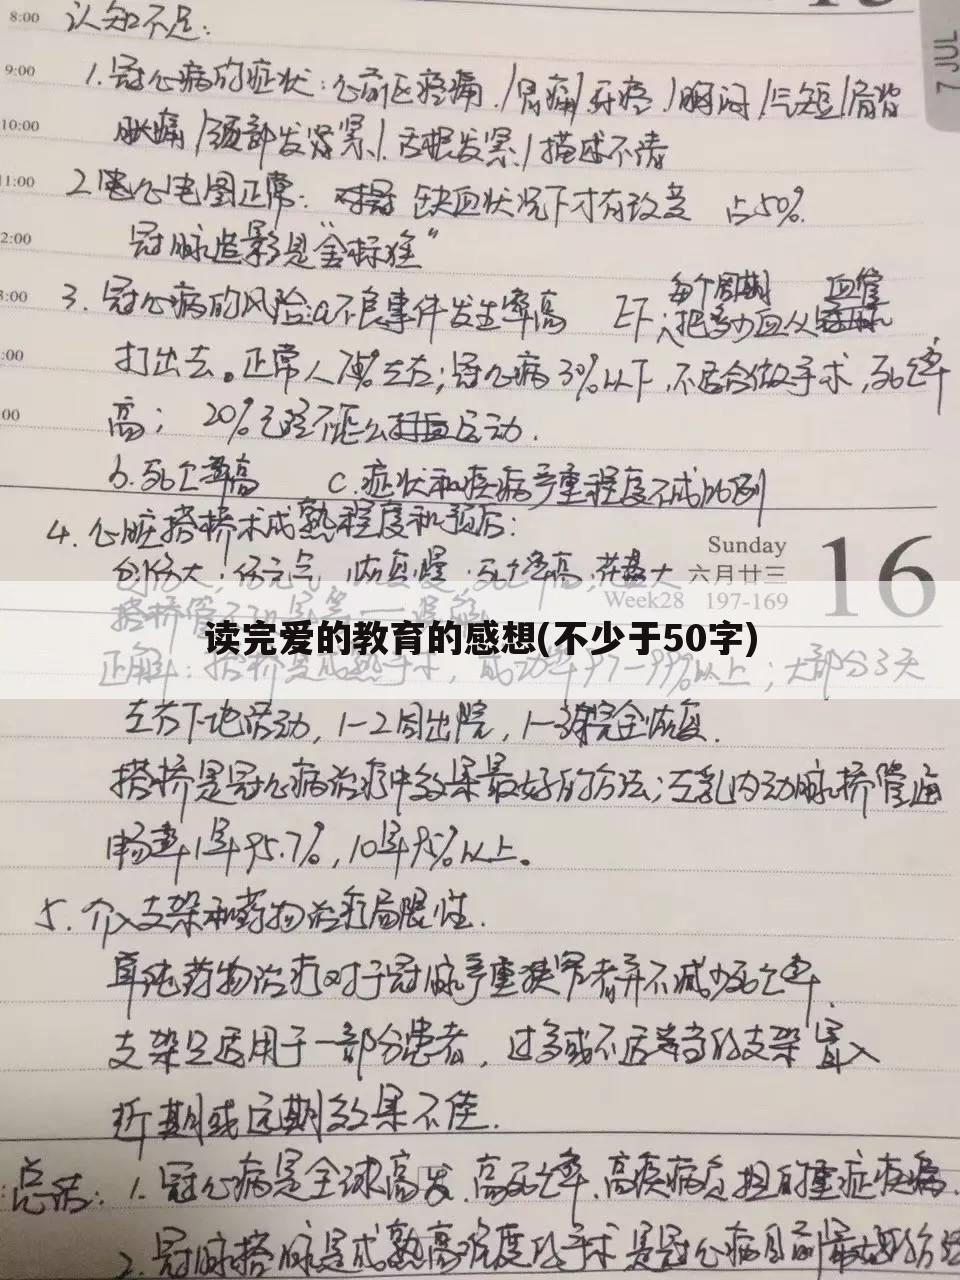 8:00 认知不足:
9:00 1.冠心病的症状:心前区疼痛/胃痛/牙疼/胸闷/气短/肩背
10:00 胀痛/颈部发紧/舌根发紧/描述不清
11:00 2.心电图正常: 缺血状况下才有改变 占50%.
2:00 冠脉造影是“金标准”
每个周期 血管
3:00 3.冠心病的风险:a不良事件发生率高 EF:把多少血从
:00 打出去。正常人 左右;冠心病30%以下,不适合做手术,死亡率
00 高; 20%已经不能 运动.
b.死亡率高 C.症状和疾病严重程度不成比例
4.心脏搭桥术成熟程度和预后:
Sunday
创伤大;伤元气,恢复慢.死亡率高;花费大 六月廿三 16
Week28 197-169
7 JUL
读完爱的教育的感想(不少于50字)
正解:搭桥是成熟手术,成功率97-99%以上;大部分3天
左右下地活动,1-2周出院,1-3 完全恢复.
搭桥是冠心病治疗中效果最好的方法;左乳内动脉桥管通
畅率1年95.7%,10年95%以上。
5.介入支架和药物治疗局限性.
单纯药物治疗对于冠脉严重狭窄者并不减少死亡率.
支架只适用于一部分患者,过多或不适当的支架置入
近期或远期效果不佳.
总结:1.冠心病是全球高发、高死亡率、高疾病负担的重症疾病.
2.冠脉搭脉是成熟高难度的手术 是冠心病目前最 的方法